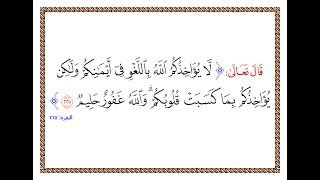 قَالَ تَعَالَىٰ: ﴿ لَّا يُؤَاخِذُكُمُ ٱللَّهُ بِٱللَّغۡوِ فِيٓ أَيۡمَٰنِكُمۡ وَلَٰكِن
يُؤَاخِذُكُم بِمَا كَسَبَتۡ قُلُوبُكُمۡۗ وَٱللَّهُ غَفُورٌ حَلِيمٞ ٢٢٥ ﴾
البقرة: ٢٢٥